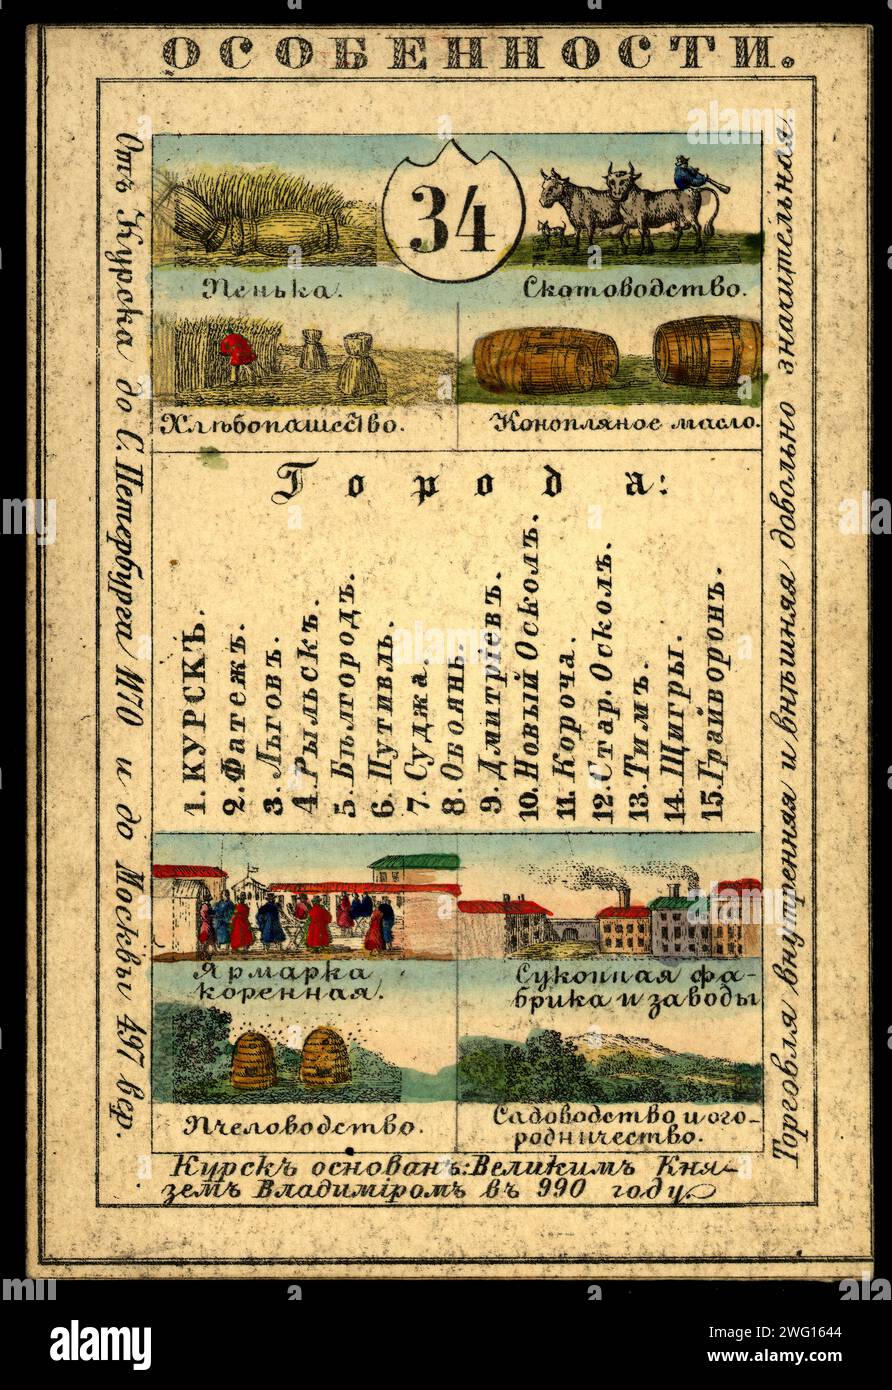 ОСОБЕННОСТИ.
34
Пенька.
Скотоводство.
Хлѣбопашество.
Конопляное масло.
Города:
1. КУРСКЪ.
2. Фатежъ.
3. Льговъ.
4. Рыльскъ.
5. Бѣлгородъ.
6. Путивль.
7. Суджа.
8. Обоянь.
9. Дмитріевъ.
10. Новый Осколъ.
11. Короча.
12. Стар. Осколъ.
13. Тимъ.
14. Щигры.
15. Грайворонъ.
Ярмарка
коренная.
Суконная фа-
брика и заводы
Пчеловодство.
Садоводство и ого-
родничество.
Курскъ основанъ: Великимъ Кня-
земъ Владиміромъ въ 990 году.
Отъ Курска до С. Петербурга 1170 и до Москвы 497 вер.
Торговля внутренняя и внѣшняя довольно значительная.
alamy
Image ID: 2WG1644
www.alamy.com